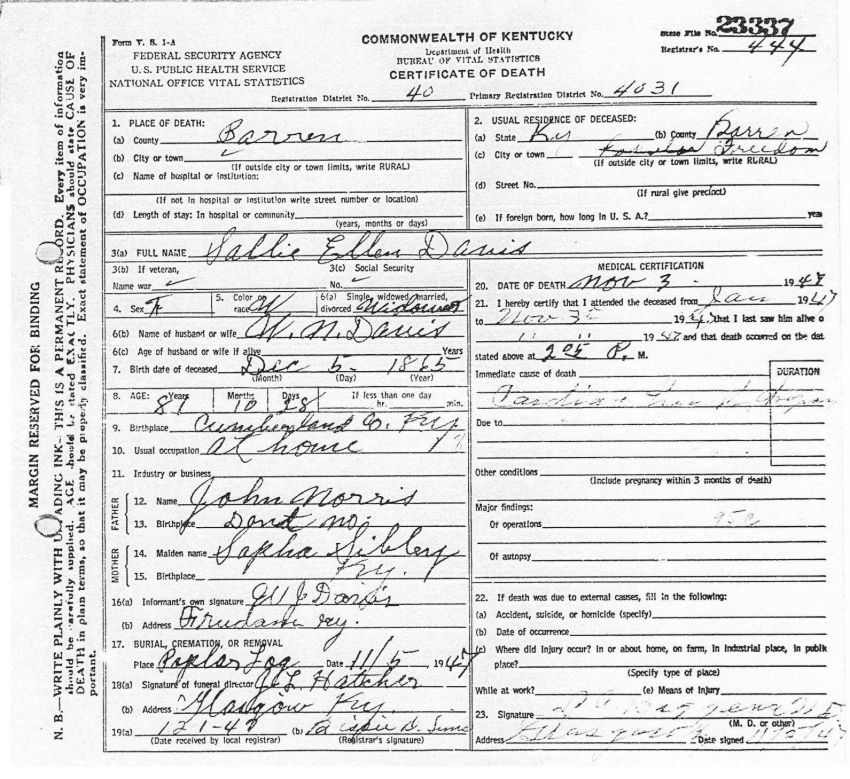 Form V. S. 1-A
FEDERAL SECURITY AGENCY
U. S. PUBLIC HEALTH SERVICE
NATIONAL OFFICE VITAL STATISTICS
COMMONWEALTH OF KENTUCKY
Department of Health
BUREAU OF VITAL STATISTICS
CERTIFICATE OF DEATH
State File No. 23337
Registrar's No. 444
Registration District No. 40 Primary Registration District No. 4031
MARGIN RESERVED FOR BINDING
N. B.—WRITE PLAINLY WITH UNFADING INK—THIS IS A PERMANENT RECORD. Every item of information
should be carefully supplied. AGE should be stated EXACTLY. PHYSICIANS should state CAUSE OF
DEATH in plain terms, so that it may be properly classified. Exact statement of OCCUPATION is very im-
portant.
1. PLACE OF DEATH:
(a) County Barren
(b) City or town
(If outside city or town limits, write RURAL)
(c) Name of hospital or institution:
(If not in hospital or institution write street number or location)
(d) Length of stay: In hospital or community
(years, months or days)
2. USUAL RESIDENCE OF DECEASED:
(a) State Ky (b) County Barren
(c) City or town Freedom
(If outside city or town limits, write RURAL)
(d) Street No.
(If rural give precinct)
(e) If foreign born, how long in U. S. A.? years
3(a) FULL NAME Sallie Ellen Davis
3(b) If veteran,
Name war
3(c) Social Security
No.
4. Sex F
5. Color or
race W
6(a) Single, widowed, married,
divorced Widowed
6(b) Name of husband or wife W. N. Davis
6(c) Age of husband or wife if alive Years
7. Birth date of deceased Dec 5 - 1865
(Month) (Day) (Year)
8. AGE: Years Months Days If less than one day
81 10 28 hr. min.
9. Birthplace Cumberland Co. Ky
10. Usual occupation at home
11. Industry or business
FATHER
12. Name John Norris
13. Birthplace Dont no.
MOTHER
14. Maiden name Sapha Sibley
15. Birthplace Ky.
16(a) Informant's own signature Davis
(b) Address Ky.
17. BURIAL, CREMATION, OR REMOVAL
Place Poplar Log Date 11/5, 1947
18(a) Signature of funeral director Hatcher
(b) Address Glasgow Ky.
19(a) 12-1-47 (b)
(Date received by local registrar) (Registrar's signature)
MEDICAL CERTIFICATION
20. DATE OF DEATH Nov 3 - 1947
21. I hereby certify that I attended the deceased from Jan 1947
to Nov 3 194, that I last saw him alive o
" " 1947 and that death occurred on the dat
stated above at 2 05 P. M.
Immediate cause of death
DURATION
Due to
Other conditions
(Include pregnancy within 3 months of death)
Major findings:
Of operations 95c
Of autopsy
22. If death was due to external causes, fill in the following:
(a) Accident, suicide, or homicide (specify)
(b) Date of occurrence
(c) Where did injury occur? In or about home, on farm, in industrial place, in publik
place?
(Specify type of place)
While at work? (e) Means of injury
23. Signature
(M. D. or other)
Address Date signed